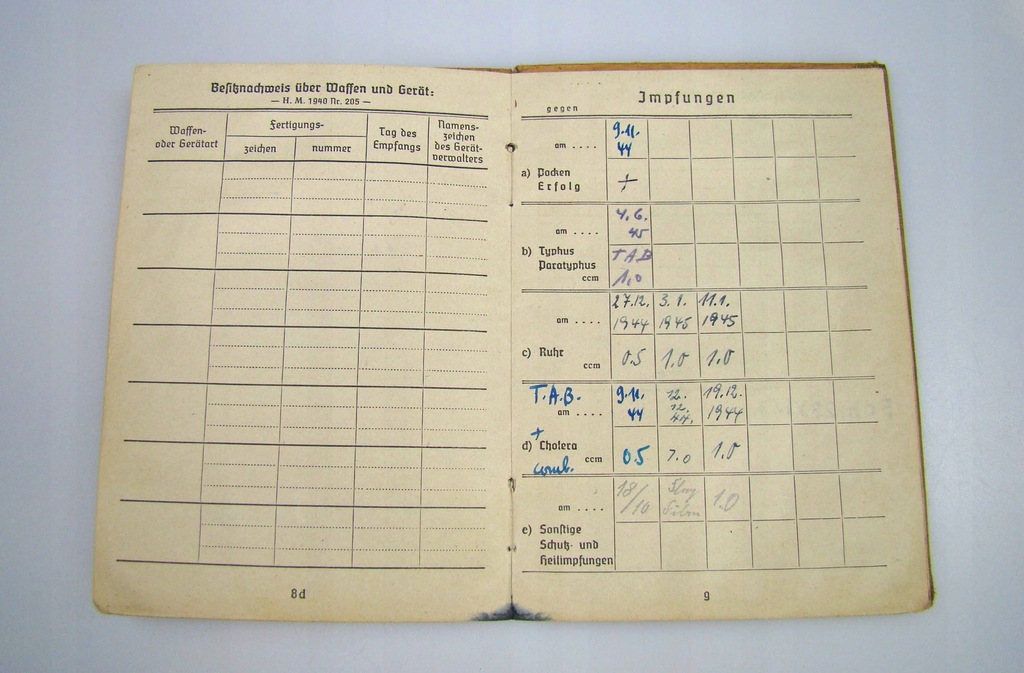 Besitznachweis über Waffen und Gerät:
— H. M. 1940 Nr. 205 —
Waffen-
oder Gerätart
Fertigungs-
zeichen
nummer
Tag des
Empfangs
Namens-
zeichen
des Gerät-
verwalters
8d
Impfungen
gegen
am ....
9.11.
44
a) Pocken
Erfolg
+
am ....
4.6.
45
b) Typhus
Paratyphus
ccm
T A B
1,0
am ....
27.12. 3.1. 11.1.
1944 1945 1945
c) Ruhr
ccm
0.5 1.0 1.0
T.A.B. 9.11. 12. 19.12.
am .... 44 12. 44. 1944
+
d) Cholera
comb. ccm 0.5 1.0 1.0
am .... 18/10 1.0
e) Sonstige
Schutz- und
Heilimpfungen
9